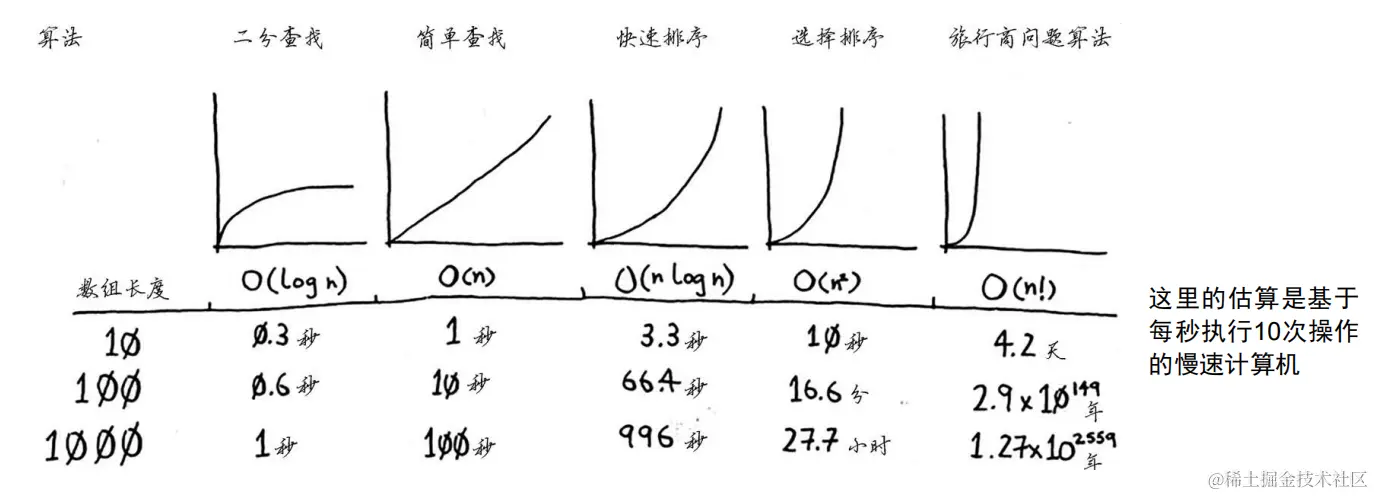 算法 二分查找 简单查找 快速排序 选择排序 旅行商问题算法
数组长度 O(log n) O(n) O(n log n) O(n²) O(n!)
10 0.3 秒 1 秒 3.3 秒 10 秒 4.2 天
100 0.6 秒 10 秒 66.4 秒 16.6 分 2.9 x 10¹⁴⁹ 年
1000 1 秒 100 秒 996 秒 27.7 小时 1.27x10²⁵⁵⁹ 年
这里的估算是基于
每秒执行10次操作
的慢速计算机
@稀土掘金技术社区